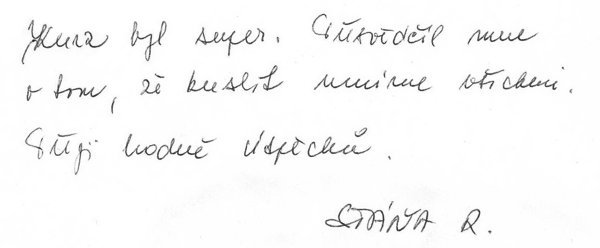 Kurz byl super. Přesvědčil mne
o tom, že kreslit umíme všichni.
Přeji hodně úspěchů.
STÁŇA R.